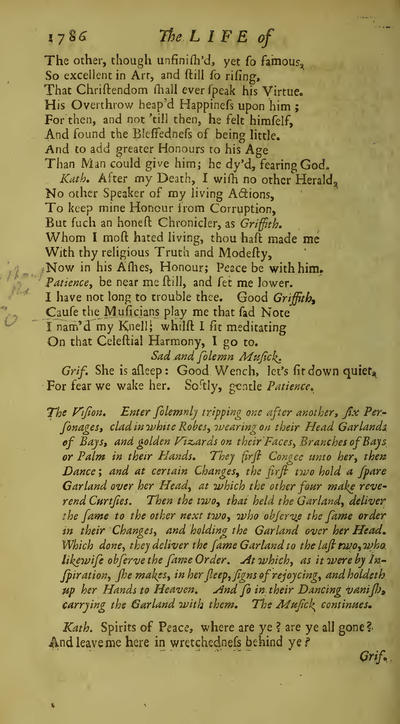 1786 The LIFE of
The other, though unfiniſh'd, yet ſo famous,
So excellent in Art, and ſtill ſo riſing,
That Chriſtendom ſhall ever ſpeak his Virtue.
His Overthrow heap'd Happineſs upon him;
For then, and not 'till then, he felt himſelf,
And found the Bleſſedneſs of being little.
And to add greater Honours to his Age
Than Man could give him; he dy'd, fearing God.
Kath. After my Death, I wiſh no other Herald,
No other Speaker of my living Actions,
To keep mine Honour from Corruption,
But ſuch an honeſt Chronicler, as Griffith.
Whom I moſt hated living, thou haſt made me
With thy religious Truth and Modeſty,
Now in his Aſhes, Honour; Peace be with him.
Patience, be near me ſtill, and ſet me lower.
I have not long to trouble thee. Good Griffith,
Cauſe the Muſicians play me that ſad Note
I nam'd my Knell; whilſt I ſit meditating
On that Celeſtial Harmony, I go to.
Sad and ſolemn Muſick.
Grif. She is aſleep: Good Wench, let's ſit down quiet,
For fear we wake her. Softly, gentle Patience.
The Viſion. Enter ſolemnly tripping one after another, ſix Per-
ſonages, clad in white Robes, wearing on their Head Garlands
of Bays, and golden Vizards on their Faces, Branches of Bays
or Palm in their Hands. They firſt Congee unto her, then
Dance; and at certain Changes, the firſt two hold a ſpare
Garland over her Head, at which the other four make reve-
rend Curtſies. Then the two, that held the Garland, deliver
the ſame to the other next two, who obſerve the ſame order
in their Changes, and holding the Garland over her Head.
Which done, they deliver the ſame Garland to the laſt two, who
likewiſe obſerve the ſame Order. At which, as it were by In-
ſpiration, ſhe makes, in her ſleep, ſigns of rejoycing, and holdeth
up her Hands to Heaven. And ſo in their Dancing vaniſh,
carrying the Garland with them. The Muſick continues.
Kath. Spirits of Peace, where are ye? are ye all gone?
And leave me here in wretchedneſs behind ye?
Grif.